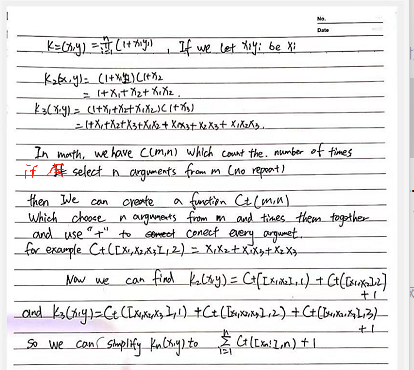 No.
Date
K=(x,y) = ∏ⁿᵢ₌₁ (1+xᵢyᵢ) , If we let xᵢyᵢ be Xᵢ
K₂(x,y) = (1+X₁)(1+X₂
= 1+X₁+X₂+X₁X₂.
K₃(x,y) = (1+X₁+X₂+X₁X₂)(1+X₃)
= 1+X₁+X₂+X₃+X₁X₂+X₁X₃+X₂X₃+X₁X₂X₃.
In math, we have C(m,n) which count the number of times
if select n arguments from m (no repeat)
then We can create a function Ct(m,n)
Which choose n arguments from m and times them together
and use "+" to conect every argumet.
for example Ct([X₁,X₂,X₃],2) = X₁X₂+X₁X₃+X₂X₃
Now we can find K₂(x,y) = Ct([X₁,X₂],1) + Ct([X₁,X₂],2)
+1
and K₃(x,y)=Ct([X₁,X₂,X₃],1)+Ct([X₁,X₂,X₃],2)+Ct([X₁,X₂,X₃],3)
+1
So we can simplify Kₙ(x,y) to ∑ⁿᵢ₌₁ Ct([Xₙ!],n)+1